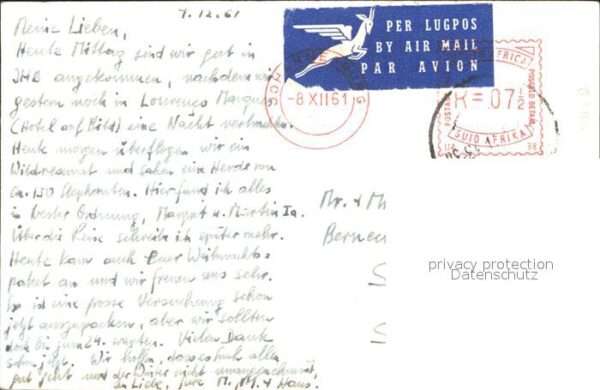 7.12.61
Meine Lieben,
Heute Mittag sind wir gut in
JHB angekommen, nachdem wir
gestern noch in Lourenco Marques
(Hotel auf Bild) eine Nacht verbracht.
Heute morgen überflogen wir ein
Wildreservat und sahen eine Herde von
ca. 150 Elephanten. Hier fand ich alles
in bester Ordnung, Margrit u. Martin Ia.
Über die Reise schreibe ich später mehr.
Heute kam auch Euer Weihnachts-
paket an und wir freuen uns sehr.
Es ist eine grosse Versuchung schon
jetzt auszupacken, aber wir sollten
doch bis zum 24. warten. Vielen Dank
schon jetzt. Wir hoffen, dass es Euch allen
gut geht und der Winter nicht
In Liebe, Eure M., M. + Hans.
PER LUGPOS
BY AIR MAIL
PAR AVION
-8 XII 61
R=07
SUID AFRIKA
Mr. + M
Bernec
privacy protection
Datenschutz